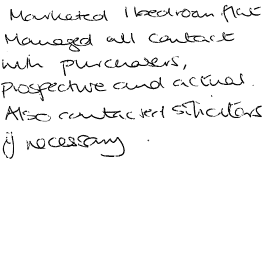 Marketed 1 bedroom flat
Managed all contact
with purchasers,
prospective and actual.
Also contacted solicitors
if necessary.